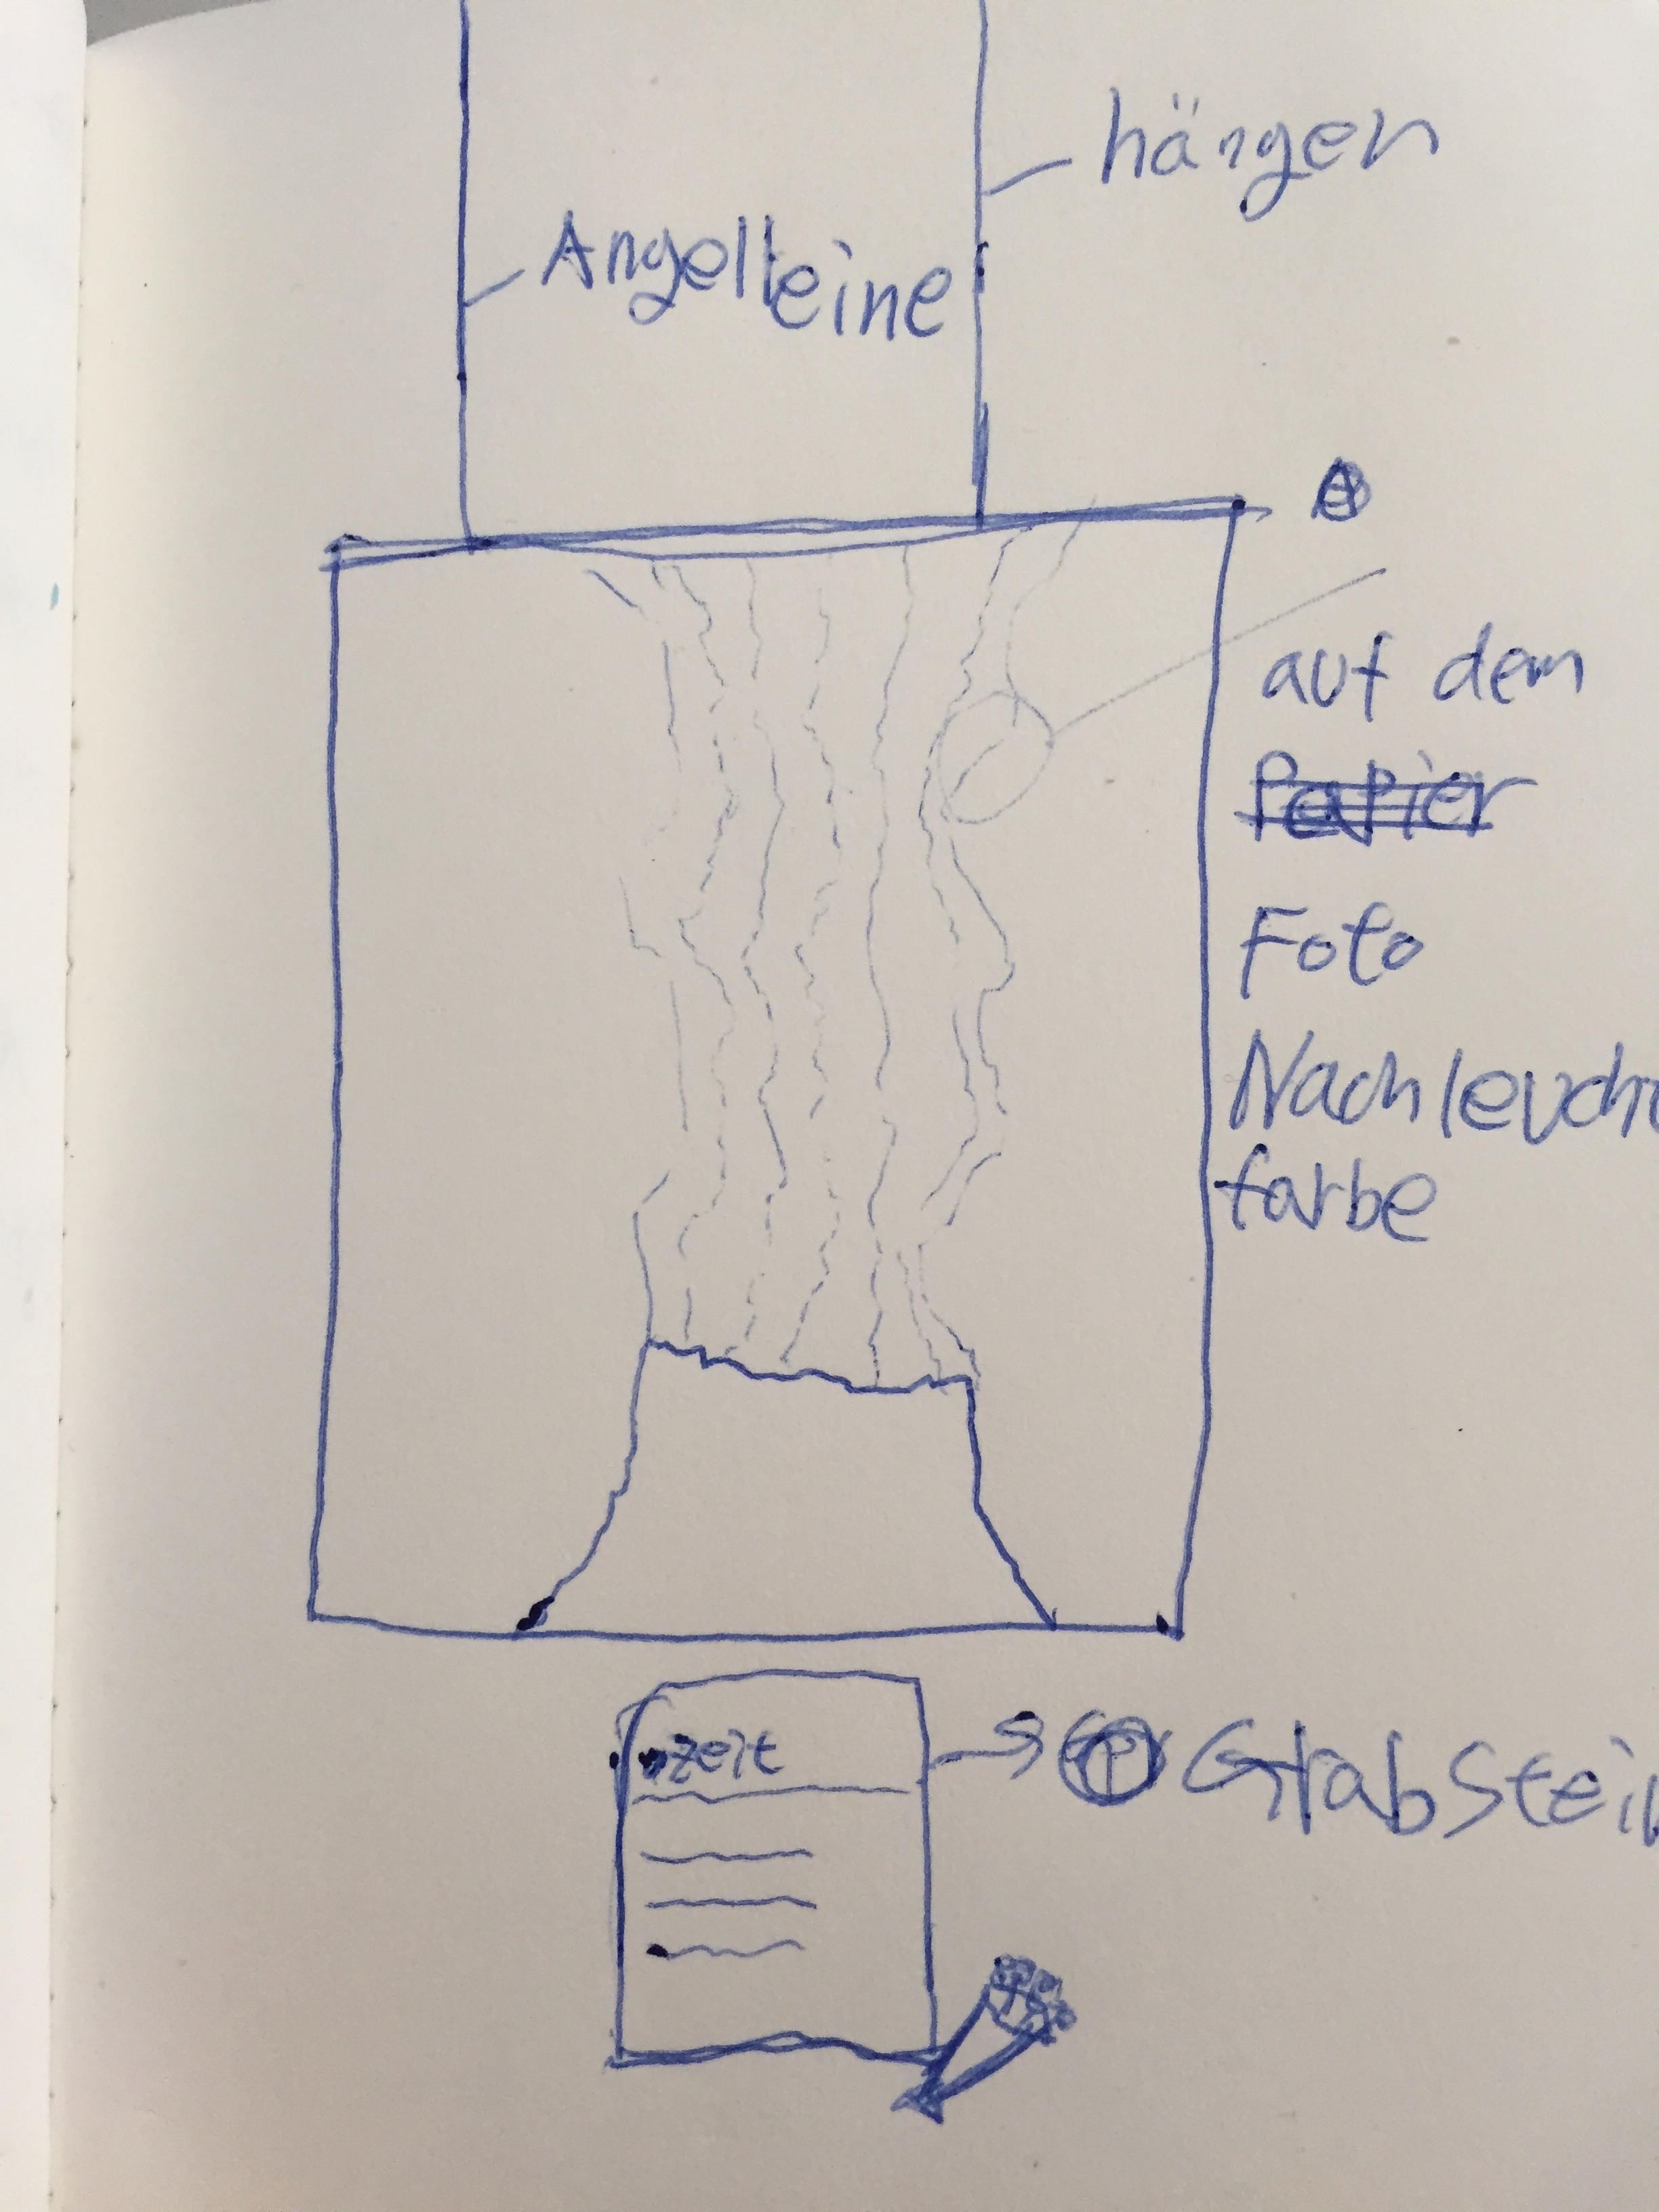 hängen
Angelleine
auf dem
Papier
Foto
Nachleucht
farbe
zeit
Grabstein